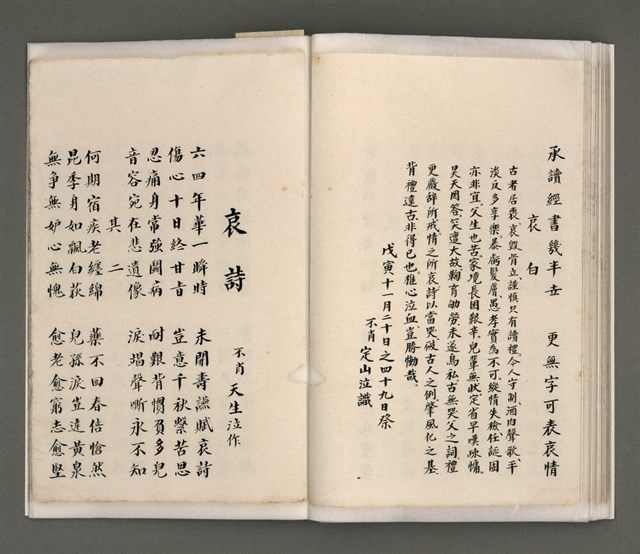 承讀經書幾半世　更無字可表哀情
哀白
古者居喪、哀毀骨立、謹慎只有讀禮、今人守制、酒肉聲歌、平
淡反多享樂暴虧髮膚、愚孝實為不可、縱情失檢任誕固
亦非宜、父生也苦、家境長困艱辛、兒輩無狀、定省早嘆疎慵、
昊天罔答、笑遭大故、鞠育劬勞未遂烏私、古無哭父之詞、禮
更嚴辭所戒、情之所哀、詩以當哭、破古人之例、肇風化之基、
背禮違古、非得已也、椎心泣血、豈勝慟哉、
戊寅十一月二十日之四十九日祭
不肖　定山泣識
哀詩
不肖　天生泣作
六四年華一瞬時　未開壽讌賦哀詩
傷心十日終甘旨　豈意千秋縈苦思
忍痛身常強鬪病　耐艱背慣負多兒
音容宛在悲遺像　淚竭聲嘶永不知
其二
何期宿疾老纏綿　藥不回春倍愴然
昆季身如飄白荻　兒孫淚豈達黃泉
無爭無妒心無愧　愈老愈窮志愈堅